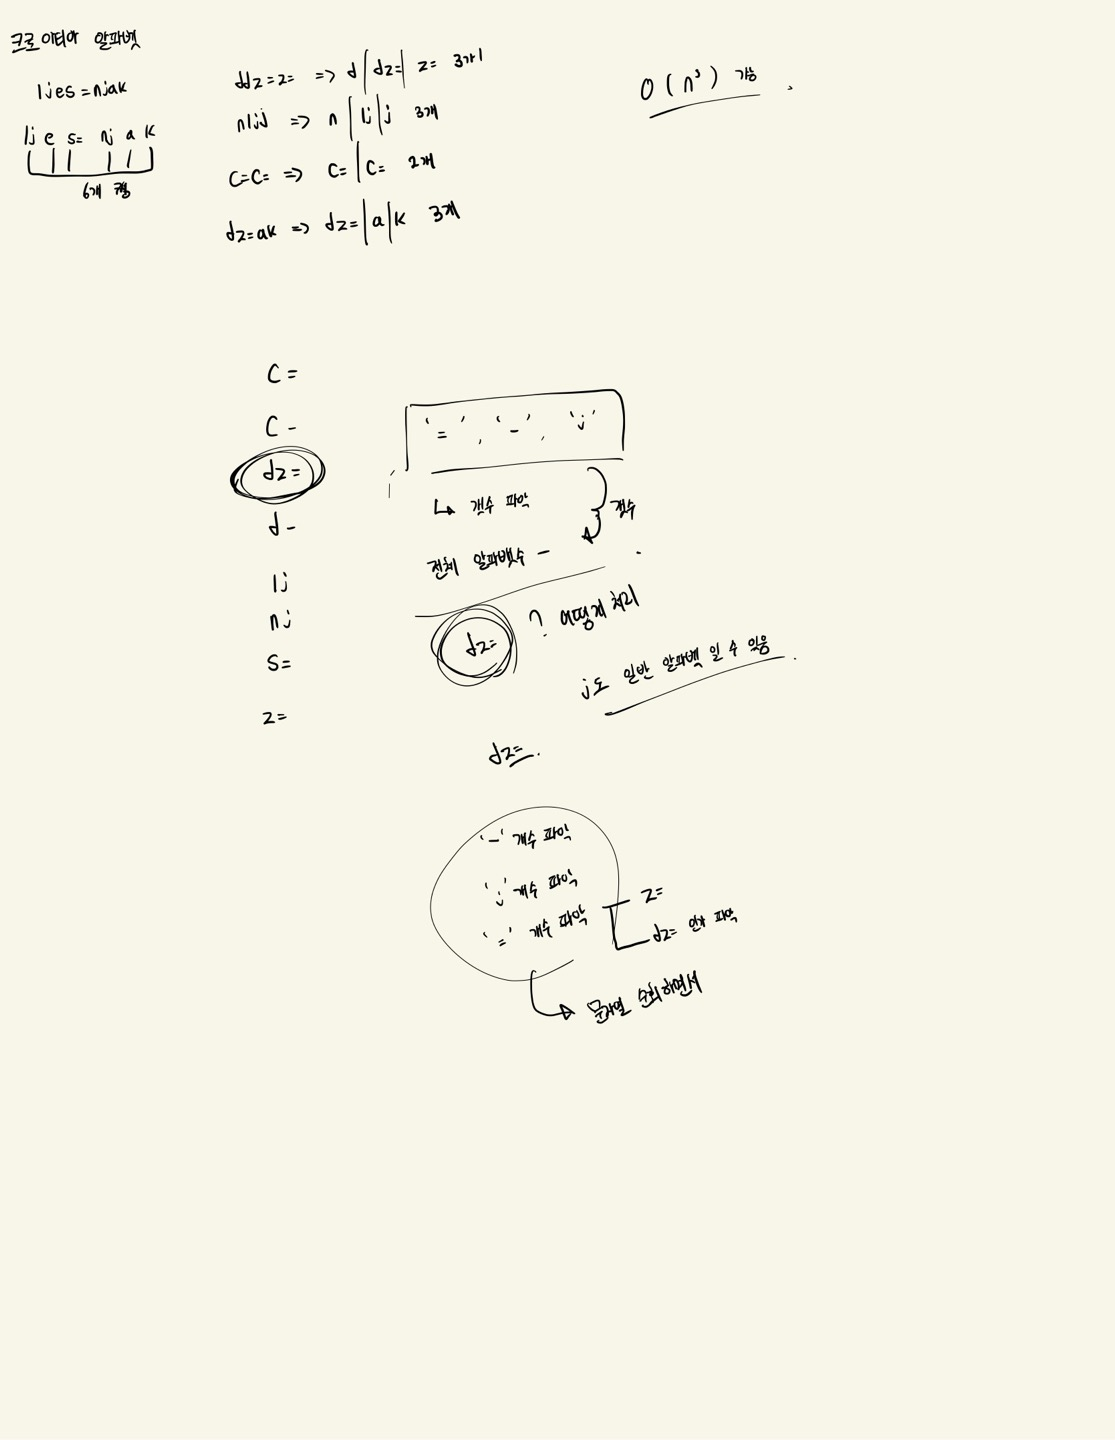 크로아티아 알파벳
ljes=njak
lj e s= nj a k
6개
ddz=z= => d | dz= | z= 3개
nljj => n | lj | j 3개
c=c= => c= | c= 2개
dz=ak => dz= | a | k 3개
O(n³) 가능.
c=
c-
dz=
d-
lj
nj
s=
z=
'=', '-', 'j'
↳ 갯수 파악
갯수
전체 알파벳수 -
dz= ? 어떻게 처리
j도 일반 알파벳 일 수 있음.
dz=.
'-' 개수 파악
'j' 개수 파악
'=' 개수 파악
z=
dz= 인지 파악
문자열 순회하면서